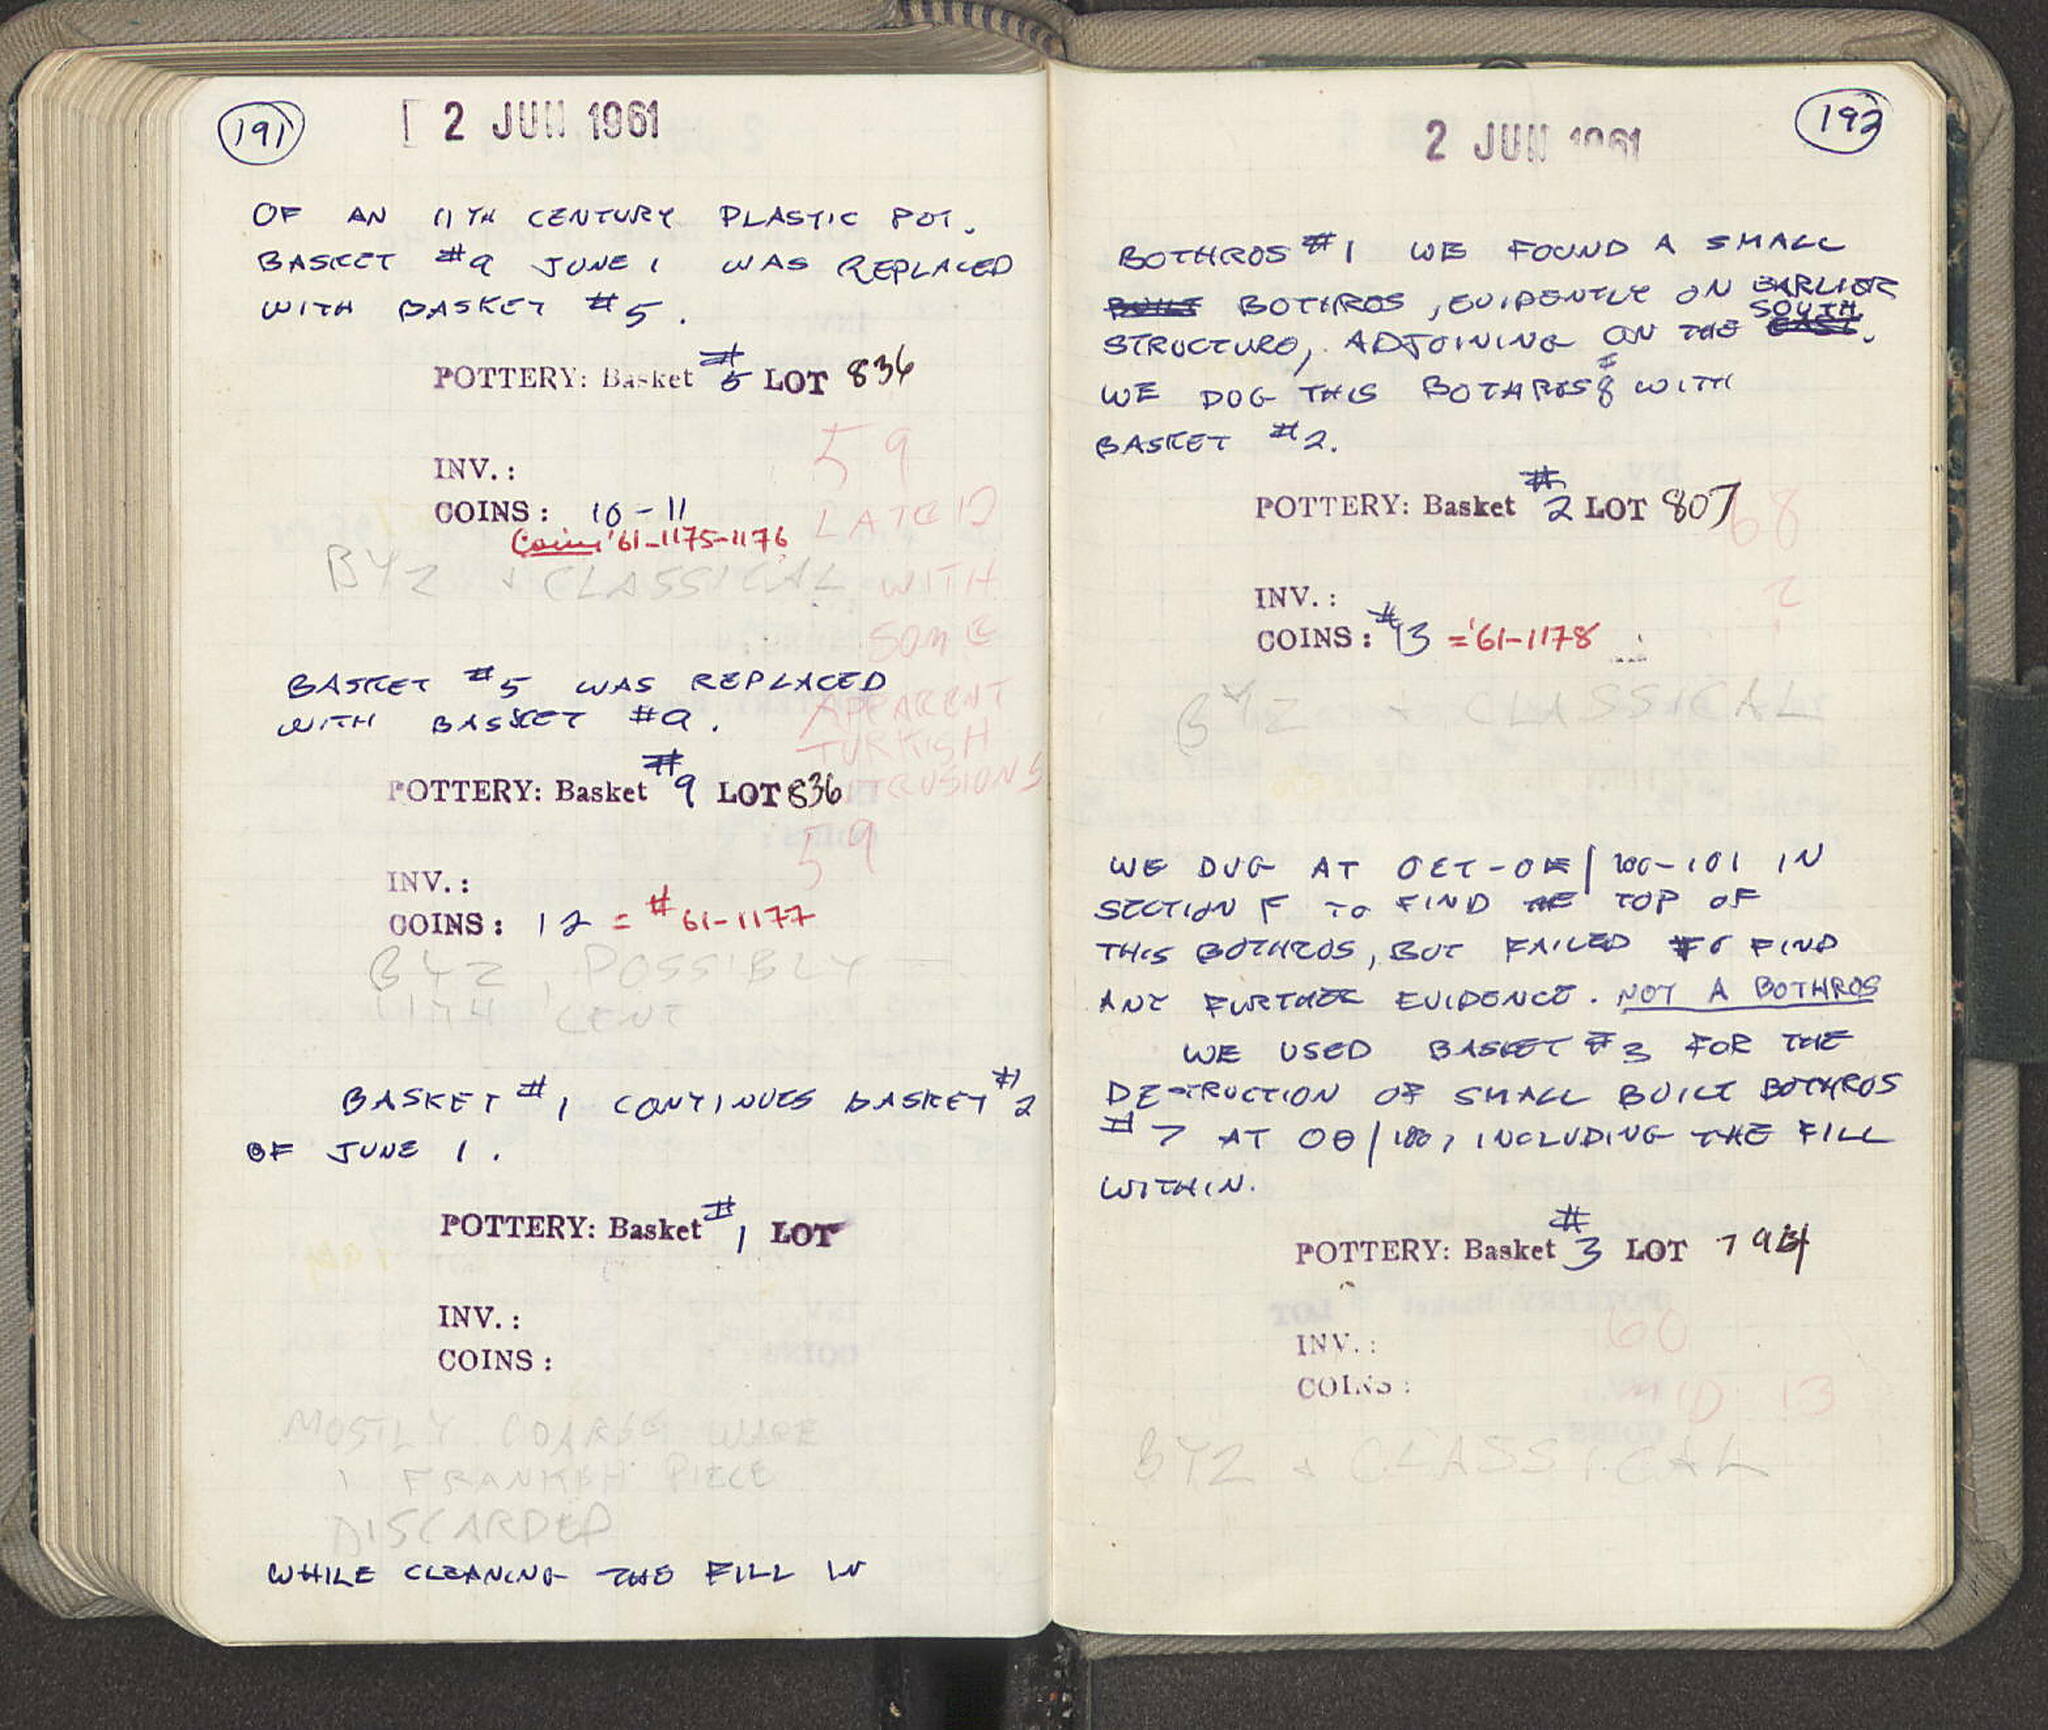 191
2 JUN 1961
OF AN 11TH CENTURY PLASTIC POT.
BASKET #9 JUNE 1 WAS REPLACED
WITH BASKET #5.
POTTERY: Basket #5 LOT 836
59
INV.:
COINS: 10-11
LATE 12
Coins '61-1175-1176
BYZ + CLASSICAL
WITH
SOME
BASKET #5 WAS REPLACED
APPARENT
WITH BASKET #9.
TURKISH
INTRUSIONS
POTTERY: Basket #9 LOT 836
59
INV.:
COINS: 12 = #61-1177
BYZ, POSSIBLY
11TH CENT
BASKET #1 CONTINUES BASKET #2
OF JUNE 1.
POTTERY: Basket #1 LOT
INV.:
COINS:
MOSTLY COARSE WARE
1 FRANKISH PIECE
DISCARDED
WHILE CLEANING THE FILL IN
192
2 JUN 1961
BOTHROS #1 WE FOUND A SMALL
BUILT BOTHROS, EVIDENTLY ON EARLIER
SOUTH
STRUCTURE, ADJOINING ON THE EAST.
WE DUG THIS BOTHROS #8 WITH
BASKET #2.
POTTERY: Basket #2 LOT 807
68
INV.:
2
COINS: #13 = '61-1178
BYZ + CLASSICAL
WE DUG AT OET-OE/100-101 IN
SECTION F TO FIND THE TOP OF
THIS BOTHROS, BUT FAILED TO FIND
ANY FURTHER EVIDENCE. NOT A BOTHROS
WE USED BASKET #3 FOR THE
DESTRUCTION OF SMALL BUILT BOTHROS
#7 AT OΘ/100, INCLUDING THE FILL
WITHIN.
POTTERY: Basket #3 LOT 794
60
INV.:
COINS:
MID 13
BYZ + CLASSICAL